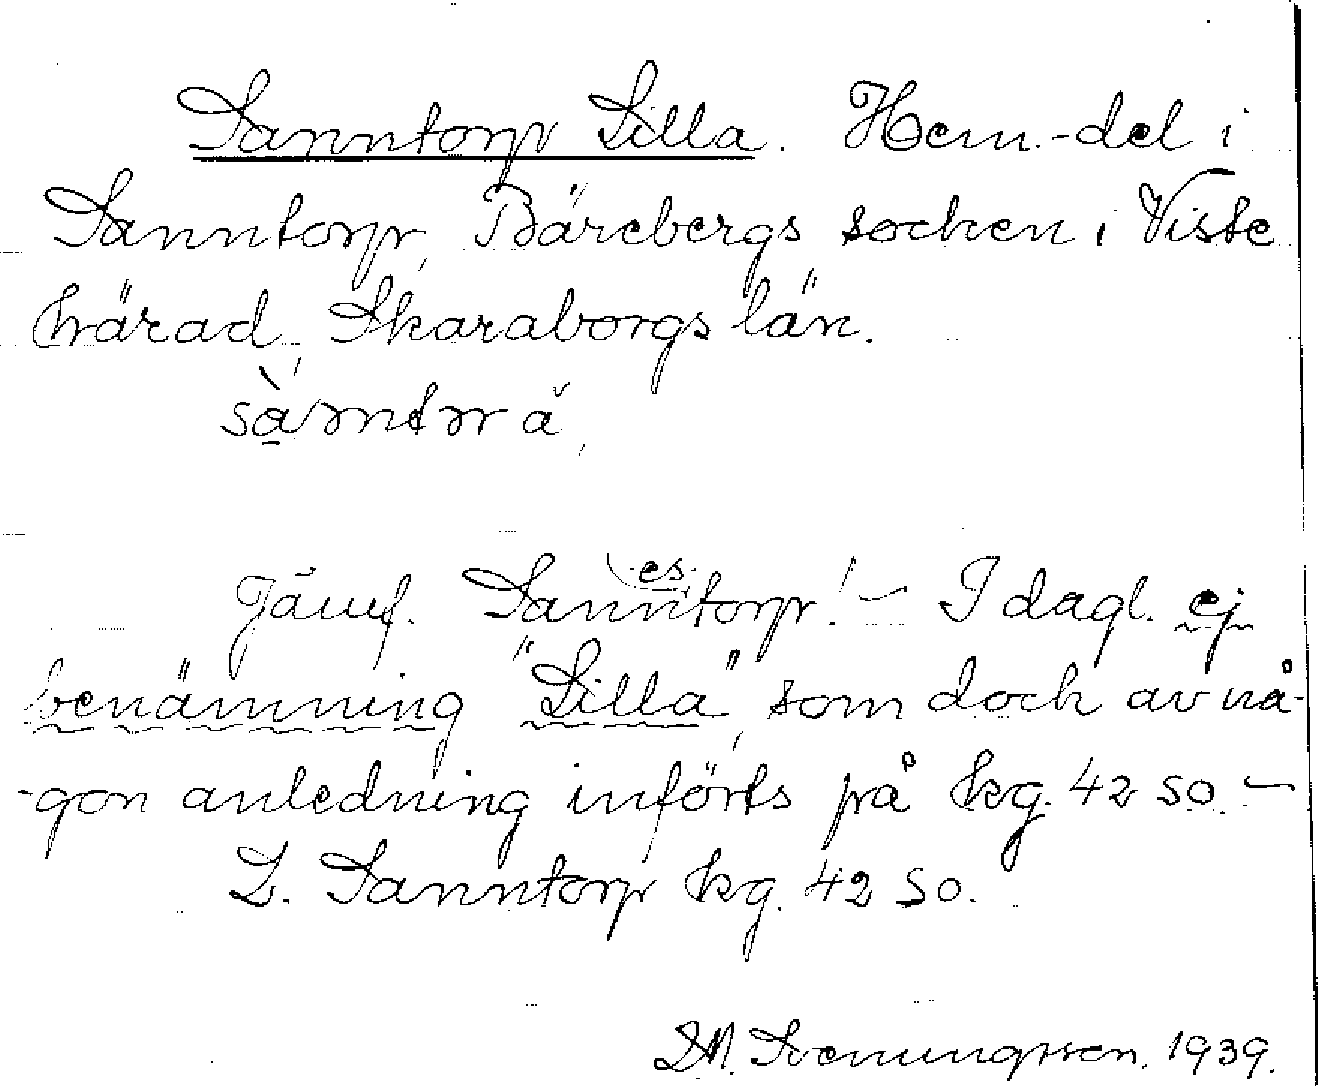 Sanntorp Lilla. Hem.-del i
Sanntorp, Bärebergs socken, Viste
härad, Skaraborgs län.
Jämf. Sann(es)torp! – I dagl. ej
benämning "Lilla", som dock av nå-
-gon anledning införts på kg. 42 SO. –
L. Sanntorp kg. 42 SO.
M. Svenungsson. 1939.